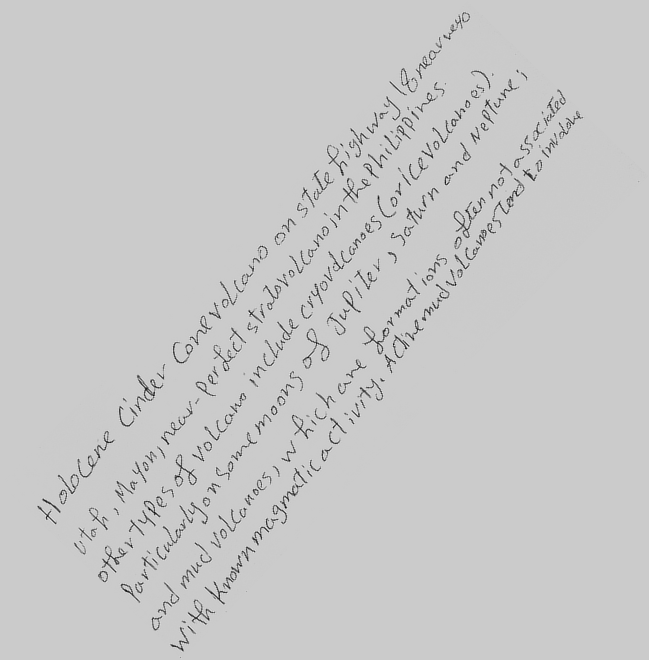 Holocene Cinder Cone volcano on state highway 18 near veyo
Utah, Mayon, near-Perfect stratovolcano in the Philippines.
other types of volcano include cryovolcanoes (or ice volcanoes).
Particularly on some moons of Jupiter, Saturn and Neptune;
and mud volcanoes, which are formations often not associated
with known magmatic activity. Active mud volcanoes tend to involve